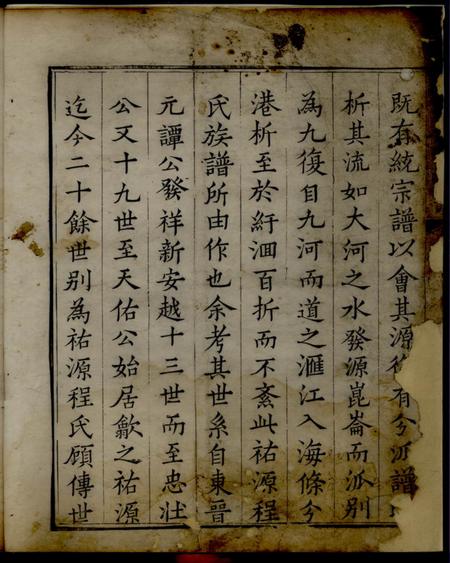 既有統宗譜以會其源復有分派譜以
析其流如大河之水發源崑崙而派别
為九復自九河而道之滙江入海條分
港析至於紆洄百折而不紊此祐源程
氏族譜所由作也余考其世系自東晋
元譚公發祥新安越十三世而至忠壯
公又十九世至天佑公始居歙之祐源
迄今二十餘世别為祐源程氏顧傳世